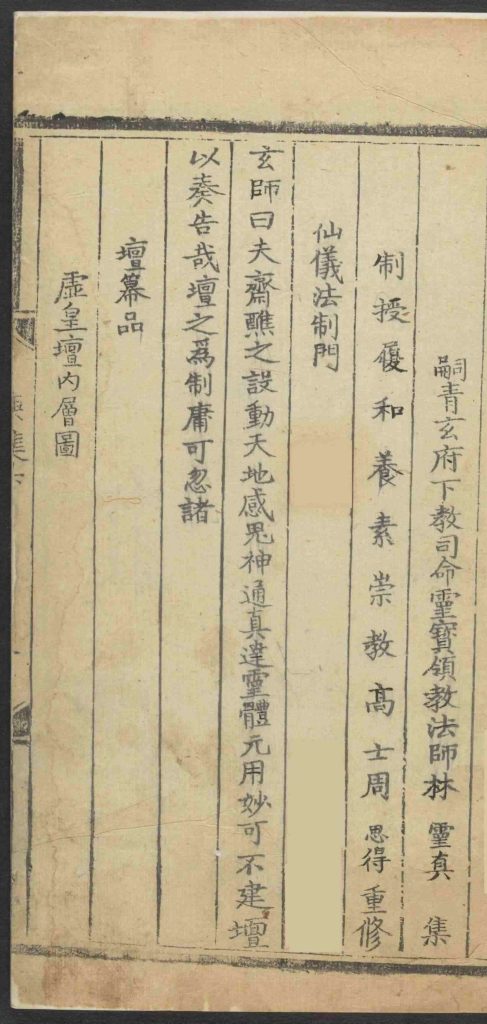 嗣青玄府下教司命靈寶領教法師林靈真集
制授履和養素崇教高士周思得重修
仙儀法制門
玄師曰夫齋醮之設動天地感鬼神通真達靈體元用妙可不建壇
以奏告哉壇之為制庸可忽諸
壇幕品
虛皇壇內層圖